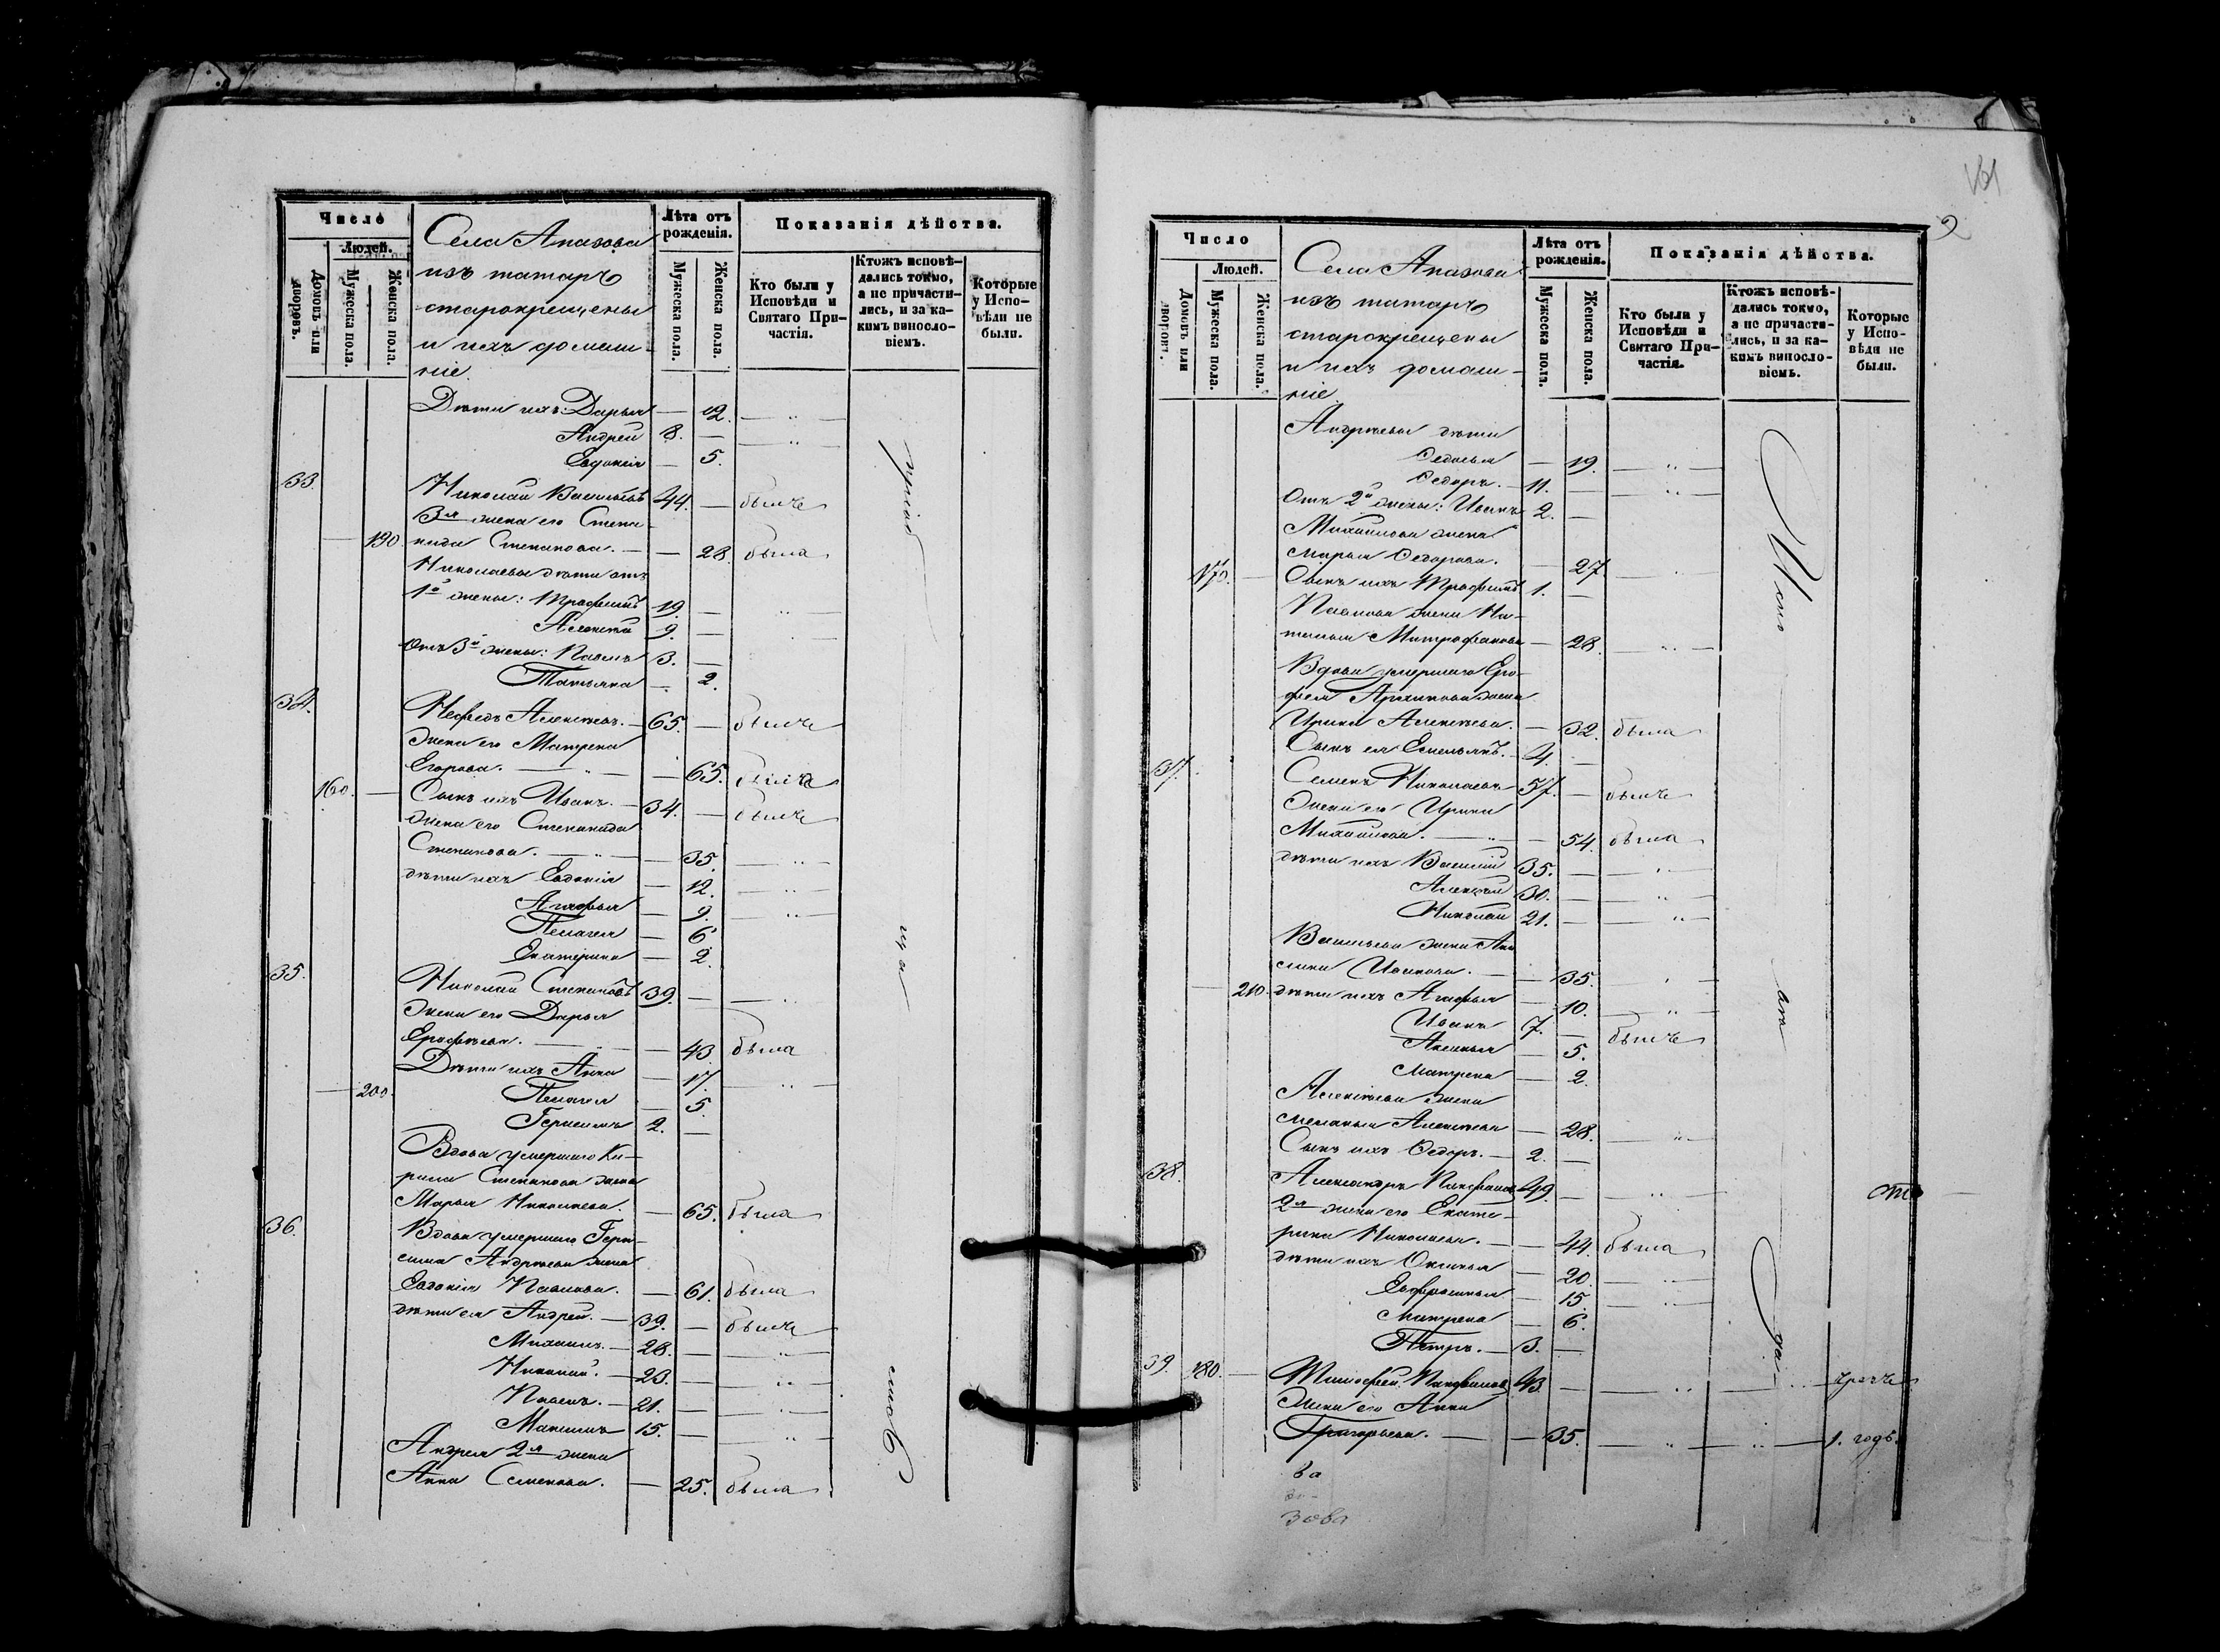 Число
Людей.
Домовъ или дворовъ.
Мужеска пола.
Женска пола.
Села Апазова
изъ татаръ
старокрещены
и ихъ домаш-
ніе.
Лѣта отъ рожденія.
Мужеска пола.
Женска пола.
Показанія дѣйства.
Кто были у Исповѣди и Святаго При-частія.
Ктожъ исповѣ-дались токмо, а не причасти-лись, и за ка-кимъ винословіемъ.
Которые у Испо-вѣди не были.
Дѣти ихъ: Дарья — 12. — „ —
Андрей 8. — — „ —
Евдокія — 5.
33. Николай Васильевъ 44. — былъ
3я жена его Степа-
190. нида Степанова. — — 28. была
Николаевы дѣти отъ
1й жены: Трофимъ 19. — — „ —
Алексѣй 9. — — „ —
Отъ 3й жены: Павелъ 3. —
Татьяна — 2.
34. Нефедъ Алексѣевъ. — 65. — былъ
Жена его Матрена
Егорова. — „ — — 65. была
160. — Сынъ ихъ Иванъ. — 34. — былъ
Жена его Степанида
Степанова. — „ — — 35. — „ —
Дѣти ихъ Евдокія — 12. — „ —
Агафья — 9. — „ —
Пелагея — 6
Екатерина — 2.
35. Николай Степановъ 39. — — „ —
Жена его Дарья
Ерофѣева. — „ — — 43. была
Дѣти ихъ Анна — 17. — „ —
200. Пелагея — 5.
Герасимъ 2. —
Вдова умершаго Ки-
рила Степанова жена
Марья Николаева. — 65. была
36. Вдова умершаго Гера-
сима Андреева жена
Евдокія Павлова. — 61. была
Дѣти ея Андрей. — 39. — былъ
Михаилъ. — 28. — — „ —
Николай. — 23. — — „ —
Павелъ. — 21. — — „ —
Максимъ 15. — — „ —
Андрея 2я жена
Анна Семенова. — 25. была
161
Число
Людей.
Домовъ или дворовъ.
Мужеска пола.
Женска пола.
Села Апазова
изъ татаръ
старокрещены
и ихъ домаш-
ніе.
Лѣта отъ рожденія.
Мужеска пола.
Женска пола.
Показанія дѣйства.
Кто были у Исповѣди и Святаго При-частія.
Ктожъ исповѣ-дались токмо, а не причасти-лись, и за ка-кимъ винословіемъ.
Которые у Испо-вѣди не были.
Андреевы дѣти
Федосья — 19. — „ —
Федоръ. — 11. — — „ —
Отъ 2й жены: Иванъ 2. —
Михайлова жена
Марья Федорова. — 27. — „ —
170. — Сынъ ихъ Трофимъ 1. —
Павлова жена На-
талья Митрофанова — 28. — „ —
Вдова умершаго Еро-
фея Архипова жена
Ирина Алексѣева. — 32. была
Сынъ ея Емельянъ. — 4. —
37. Семенъ Николаевъ 57. — былъ
Жена его Ирина
Михайлова. — „ — 54. была
Дѣти ихъ Василій 35. — — „ —
Алексѣй 30. — — „ —
Николай 21. — — „ —
Васильева жена Аку-
лина Иванова. — — 35. — „ —
210. Дѣти ихъ Агафья — 10. — „ —
Иванъ 7. — былъ
— 5.
Матрена — 2.
Алексѣева жена
Меланья Алексѣева — 28. — „ —
Сынъ ихъ Федоръ. — 2. —
38. Александръ Панфиловъ 49. — — „ —
2я жена его Екате-
рина Николаева. — — 44. была
Дѣти ихъ Оксинья — 20. — „ —
Евфросинья — 15. — „ —
Матрена — 6.
Петръ. — 3. —
39. 180. — Тимофей Панфиловъ 43. — — „ — — „ — чрезъ
Жена его Анна
Григорьева. — — 35. — „ — — „ — 1. годъ.
ва
зова